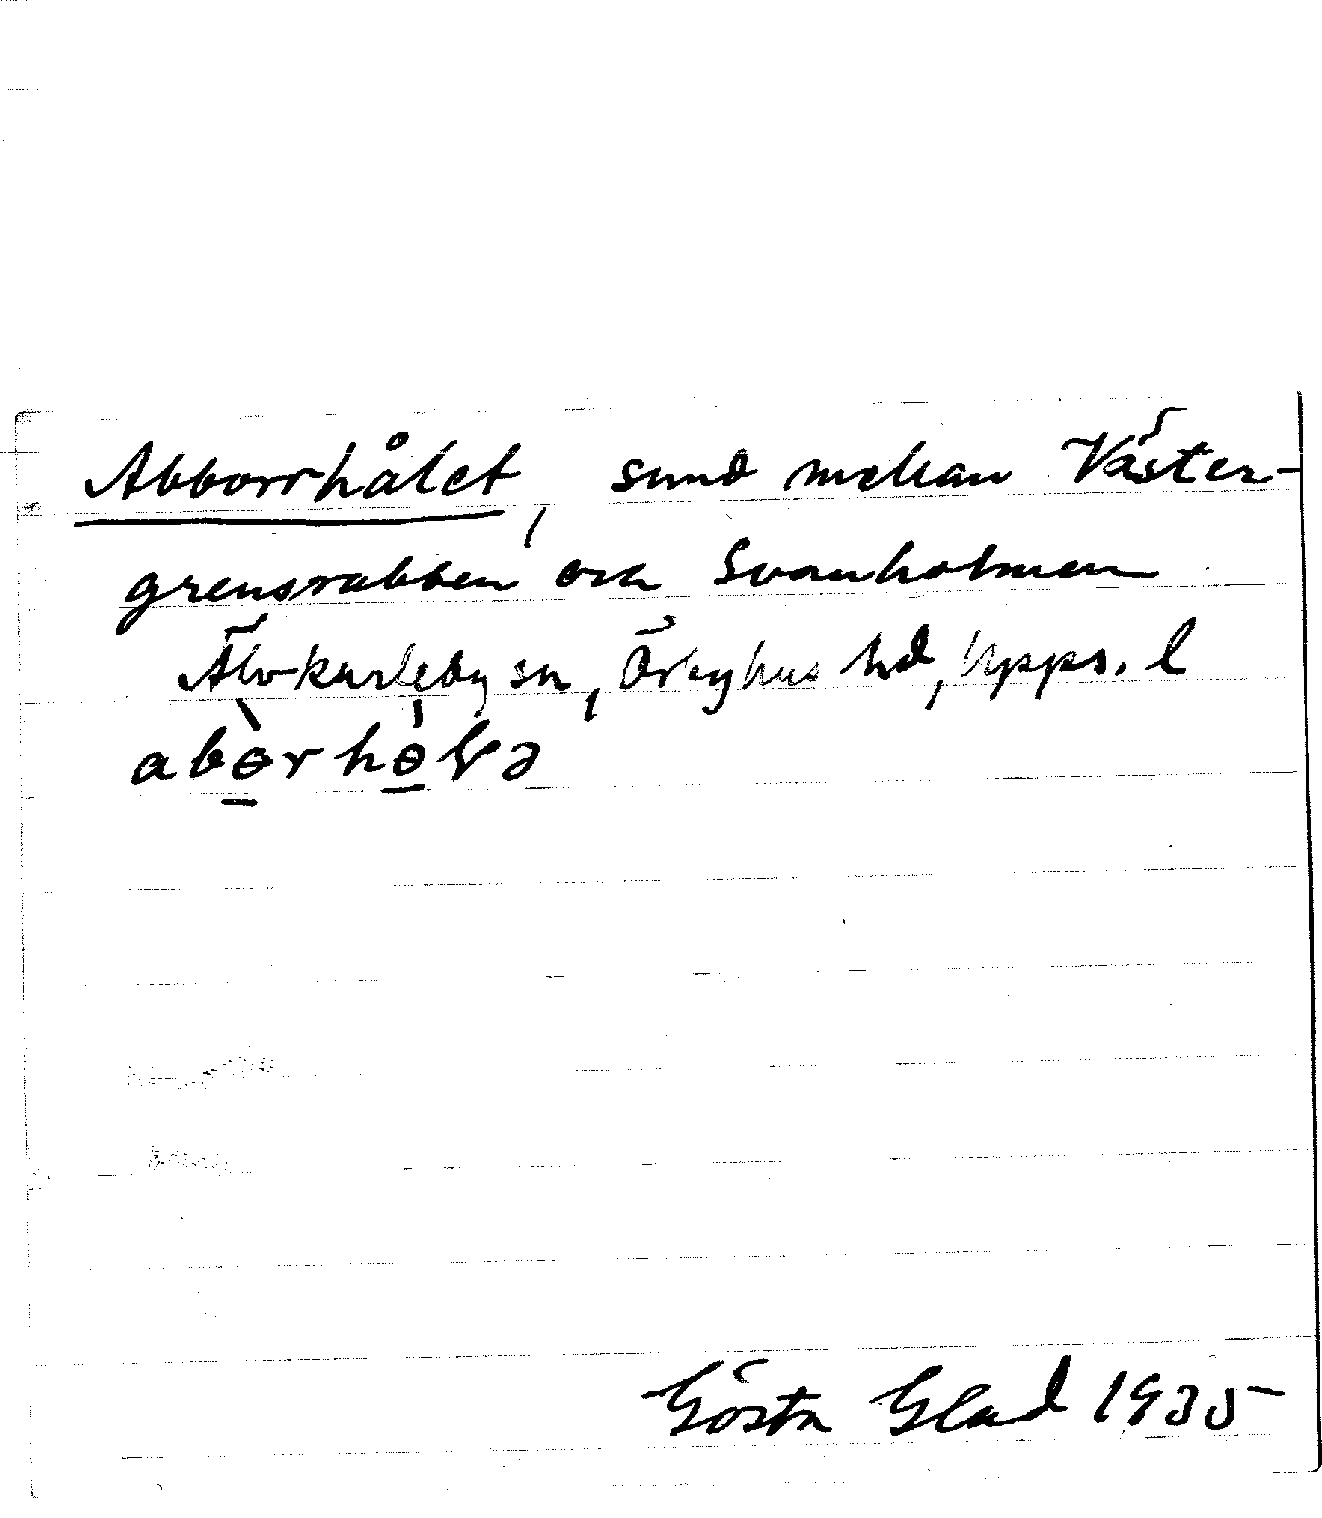 Abborrhålet, sund mellan Väster-
grensrabben och Svanholmen
Älvkarleby sn, Örbyhus hd, Upps. l
Gösta Glad 1935